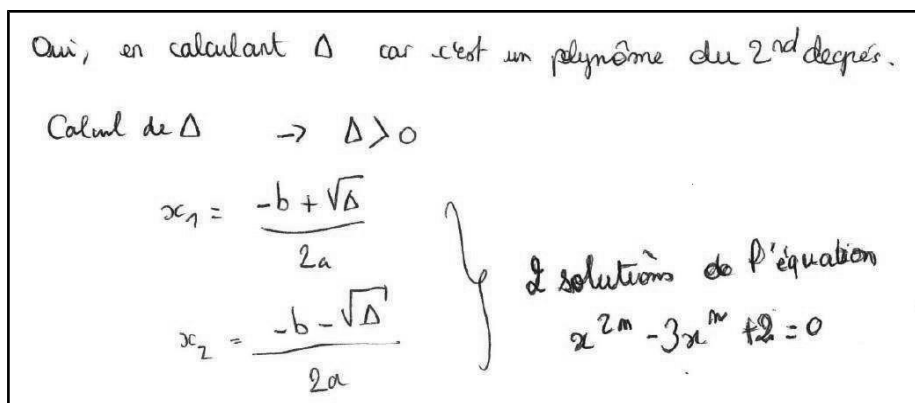 Oui, en calculant Δ car c'est un polynôme du 2nd degrés.
Calcul de Δ → Δ > 0
x₁ = (-b + √Δ) / 2a
x₂ = (-b - √Δ) / 2a
2 solutions de l'équation
x^{2n} - 3x^n + 2 = 0